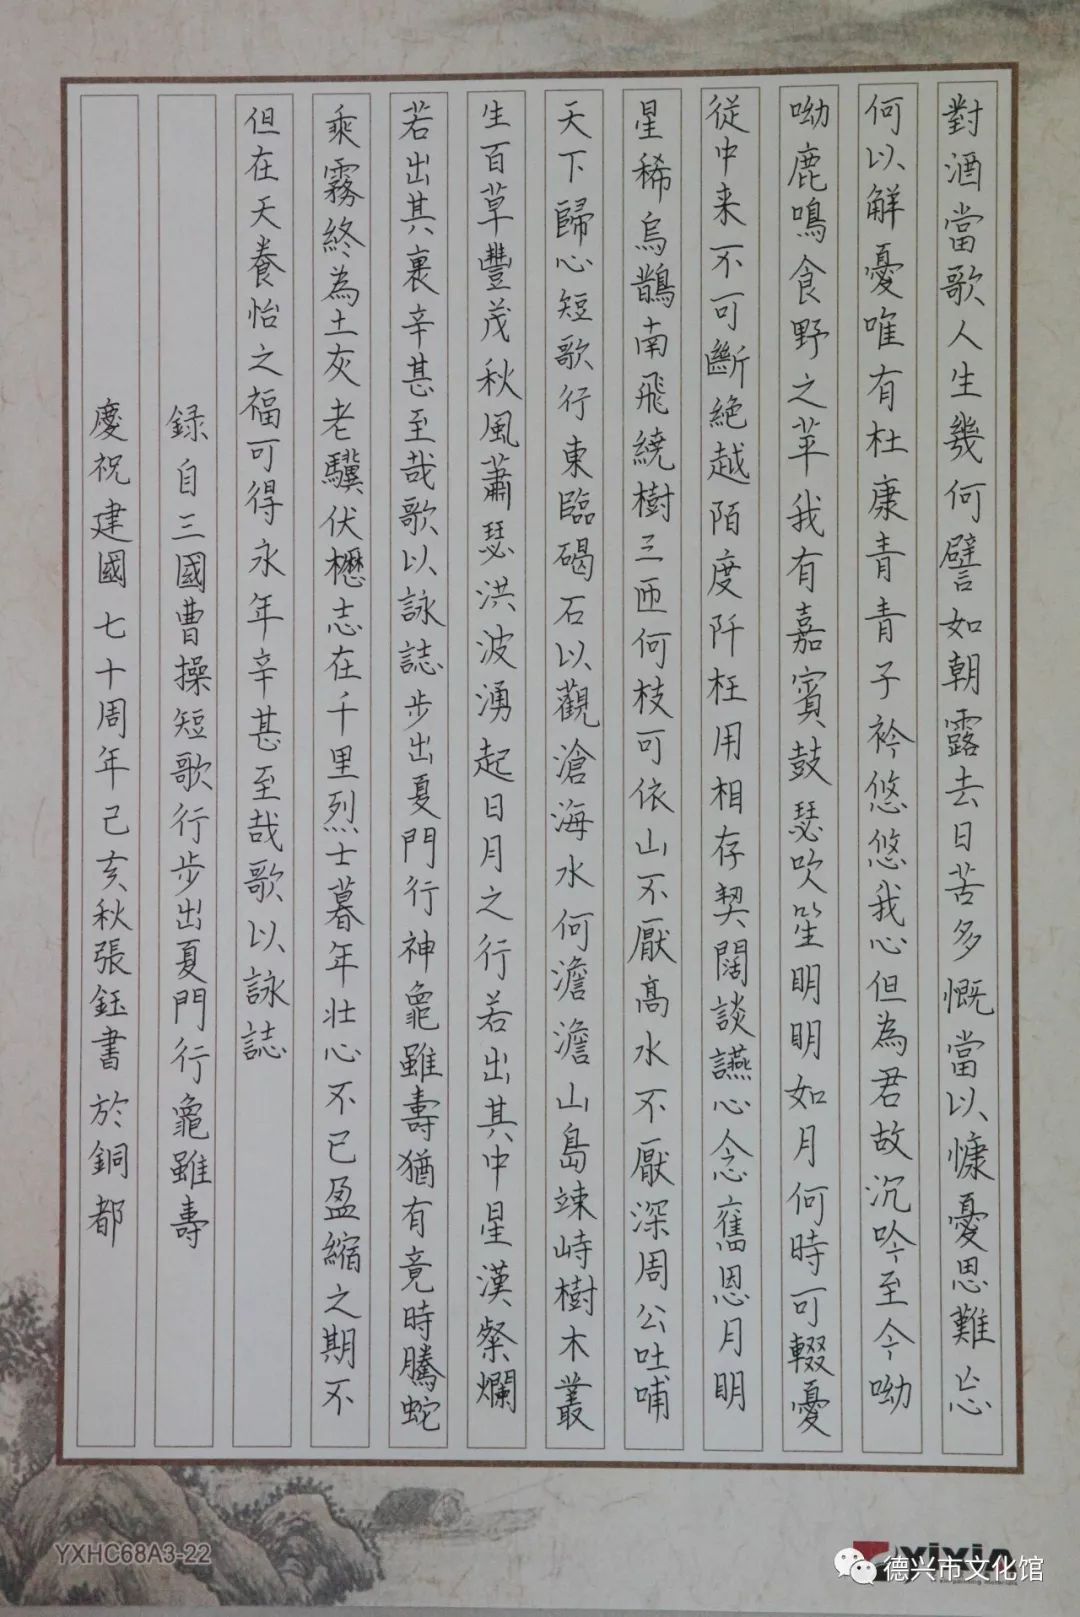 對酒當歌人生幾何譬如朝露去日苦多慨當以慷憂思難忘
何以解憂唯有杜康青青子衿悠悠我心但為君故沉吟至今呦
呦鹿鳴食野之苹我有嘉賓鼓瑟吹笙明明如月何時可輟憂
從中来不可斷絕越陌度阡枉用相存契闊談讌心念舊恩月明
星稀烏鵲南飛繞樹三匝何枝可依山不厭高水不厭深周公吐哺
天下歸心短歌行東臨碣石以觀滄海水何澹澹山島竦峙樹木叢
生百草豐茂秋風蕭瑟洪波湧起日月之行若出其中星漢粲爛
若出其裏幸甚至哉歌以詠誌步出夏門行神龜雖壽猶有竟時騰蛇
乘霧終為土灰老驥伏櫪志在千里烈士暮年壯心不已盈縮之期不
但在天養怡之福可得永年幸甚至哉歌以詠誌
録自三國曹操短歌行步出夏門行龜雖壽
慶祝建國七十周年己亥秋張鈺書於銅都
YXHC68A3-22
yixin
德兴市文化馆